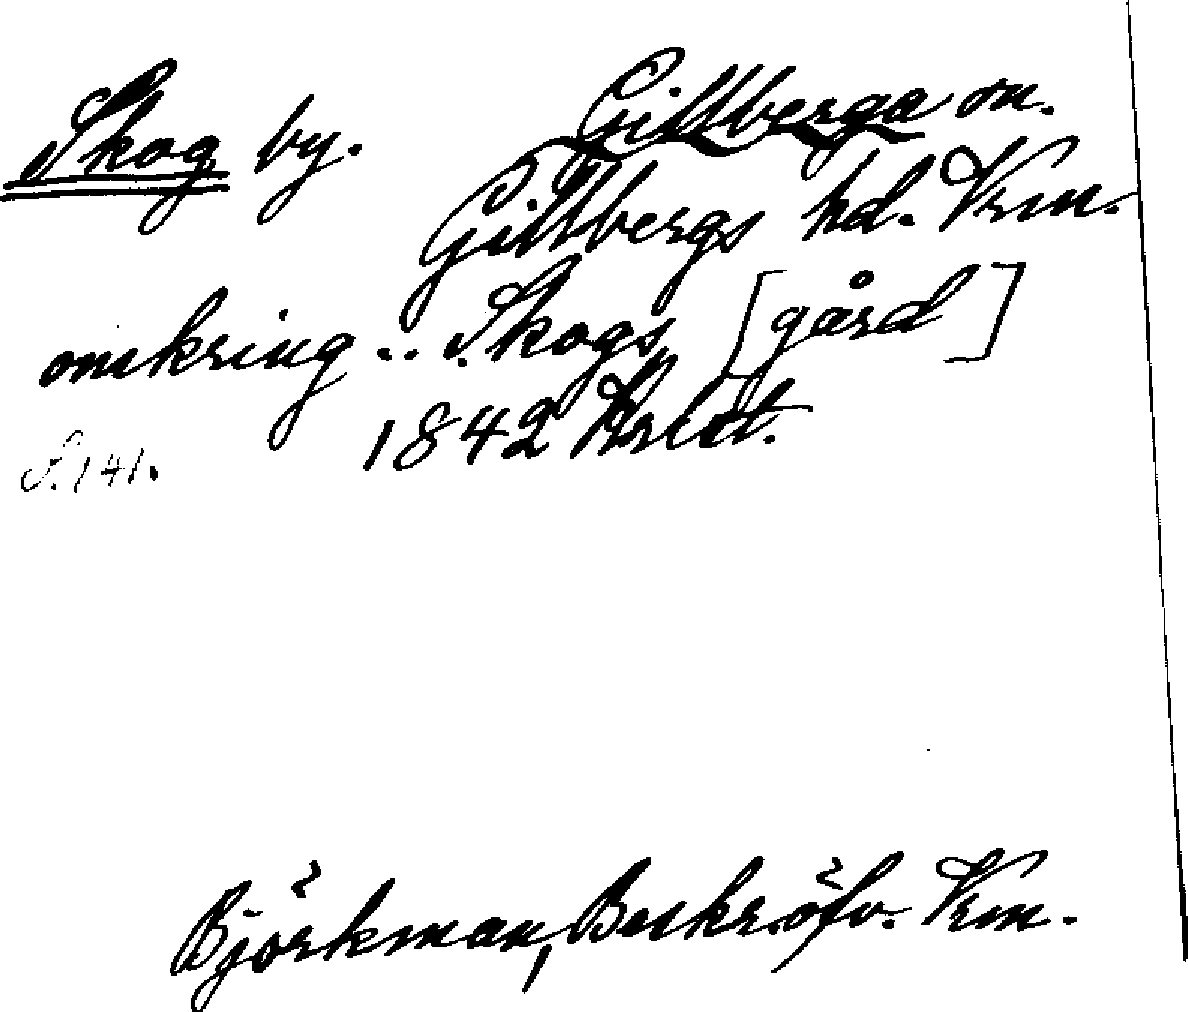 Skog by. Gillberga sn.
Gillbergs hd. Vrm.
omkring .. Skogs [gård]
S. 141. 1842
Björkman, Beskr. öfv. Vrm.